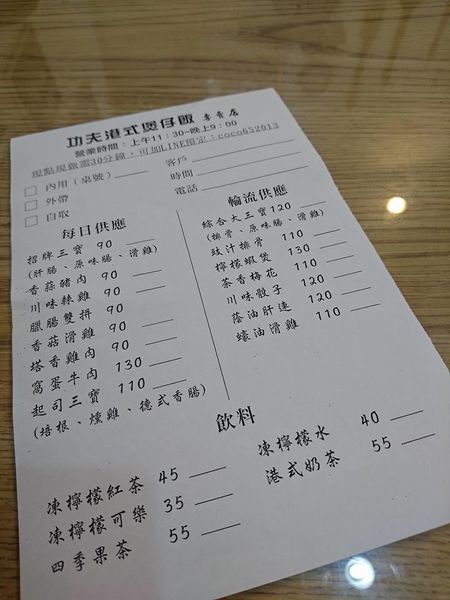 功夫港式煲仔飯 專賣店
營業時間：上午11：30~晚上9：00
現點現做需30分鐘，可加LINE預定：coco652013
內用（桌號） 客戶
外帶 時間
自取 電話
每日供應
招牌三寶 90
(肝腸、原味腸、滑雞)
香蒜豬肉 90
川味辣雞 90
臘腸雙拼 90
香菇滑雞 90
塔香雞肉 90
窩蛋牛肉 130
起司三寶 110
(培根、燻雞、德式香腸)
輪流供應
綜合大三寶 120
(排骨、原味腸、滑雞)
豉汁排骨 110
檸檬蝦煲 130
茶香梅花 110
川味骰子 120
蔭油肝連 120
蠔油滑雞 110
飲料
凍檸檬紅茶 45
凍檸檬可樂 35
四季果茶 55
凍檸檬水 40
港式奶茶 55